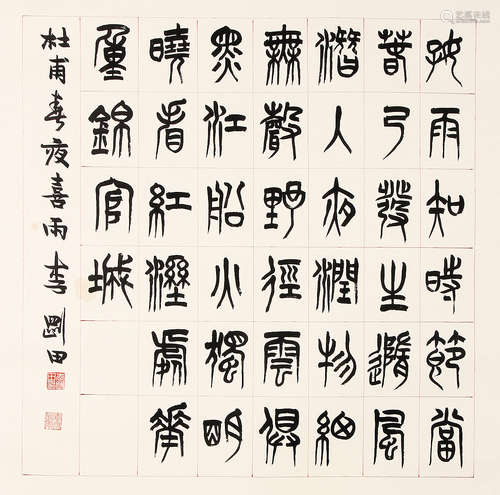 好雨知時節當
春乃發生隨風
潛入夜潤物細
無聲野徑雲俱
黑江船火獨明
曉看紅溼處華
重錦官城
杜甫春夜喜雨李剛田